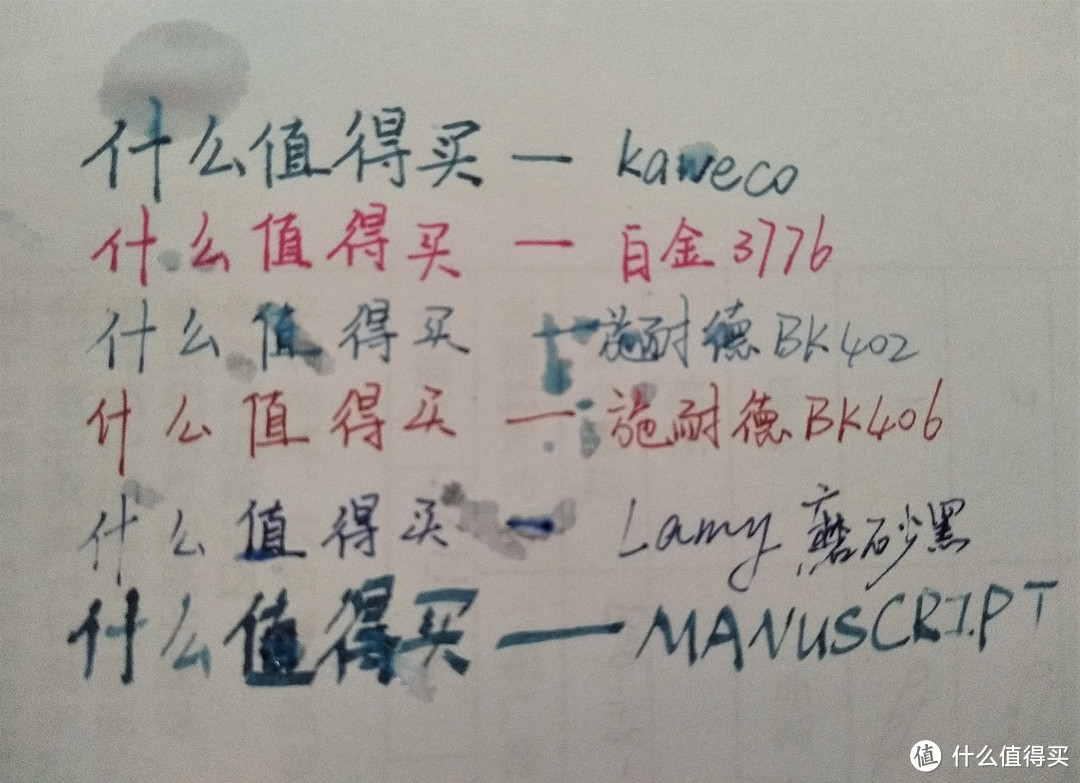 什么值得买 — kaweco
什么值得买 — 白金3776
什么值得买 — 施耐德BK402
什么值得买 — 施耐德BK406
什么值得买 — Lamy 磨砂黑
什么值得买 — MANUSCRIPT
值 什么值得买